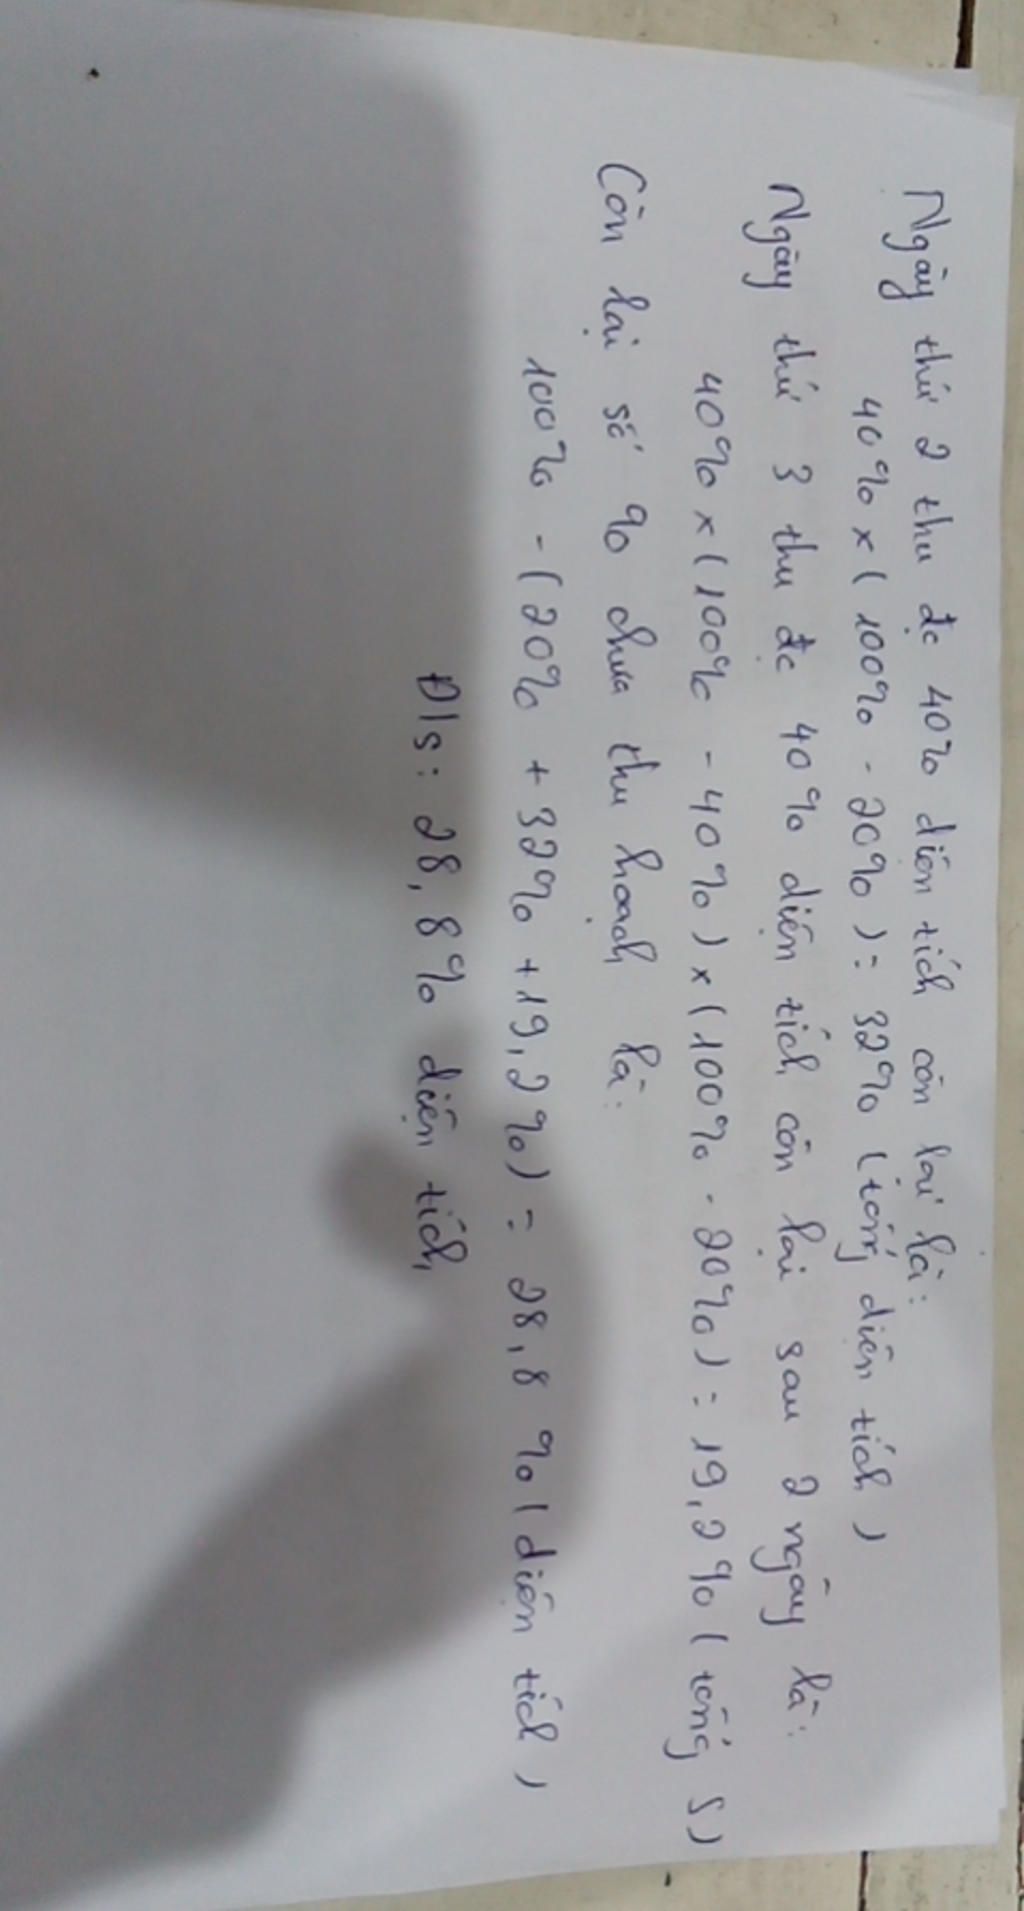 Ngày thứ 2 thu đc 40% diện tích còn lại là:
40% x ( 100% - 20% ) = 32% ( tổng diện tích )
Ngày thứ 3 thu đc 40% diện tích còn lại sau 2 ngày là:
40% x ( 100% - 40% ) x ( 100% - 20% ) = 19,2% ( tổng S )
Còn lại số % chưa thu hoạch là:
100% - ( 20% + 32% + 19,2% ) = 28,8 % ( diện tích )
Đ/s : 28,8% diện tích